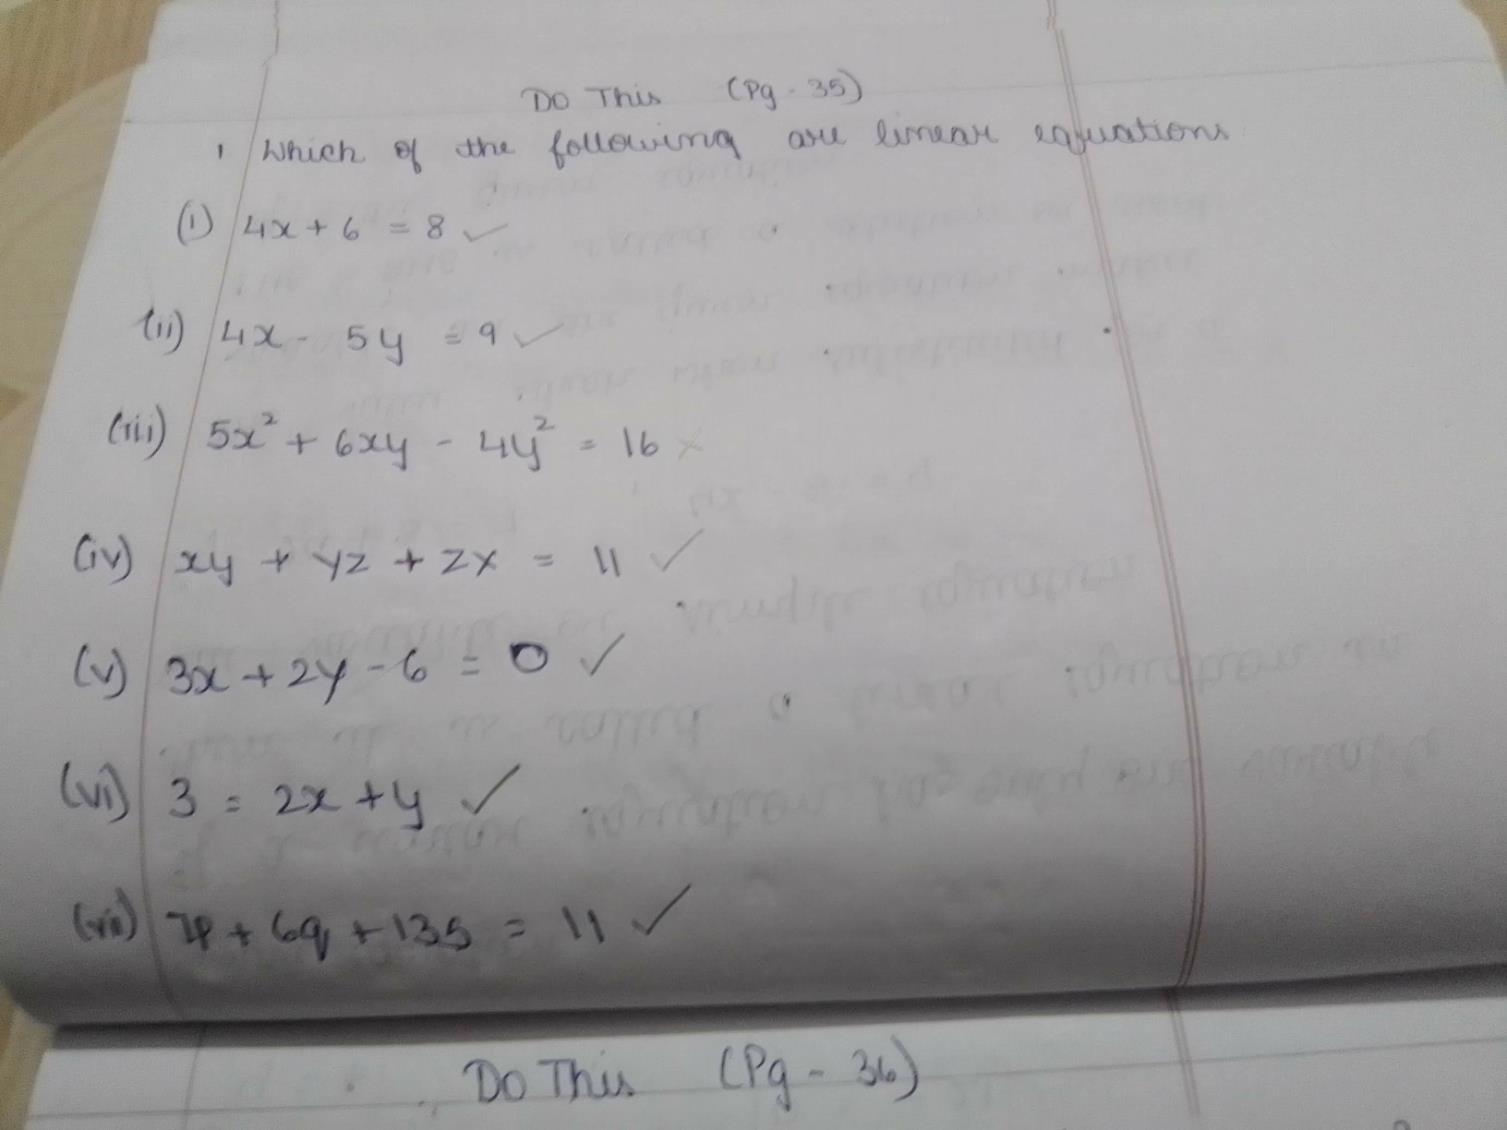 Do This (Pg - 35)
1 Which of the following are linear equations
(i) 4x + 6 = 8 ✓
(ii) 4x - 5y = 9 ✓
(iii) 5x² + 6xy - 4y² = 16 ×
(iv) xy + yz + zx = 11 ✓
(v) 3x + 2y - 6 = 0 ✓
(vi) 3 = 2x + y ✓
(vii) 7p + 6q + 13s = 11 ✓
Do This (Pg - 36)